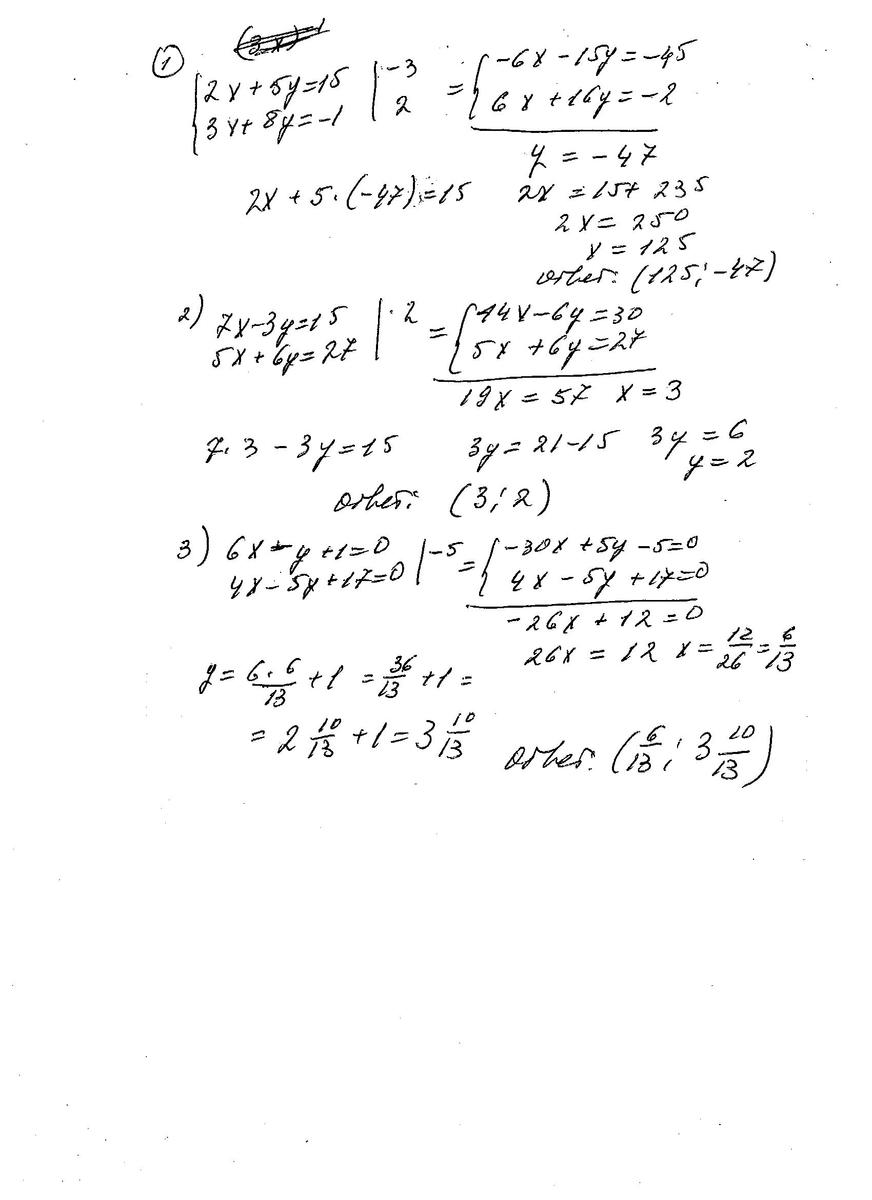 ① (2x)=1
{2x+5y=15 | -3 = {-6x-15y=-45
3x+8y=-1 | 2 6x+16y=-2
y = -47
2x + 5·(-47)=15 2x = 15+235
2x = 250
x = 125
Ответ: (125; -47)
2) 7x-3y=15 | ·2 = {14x-6y=30
5x+6y=27 5x+6y=27
19x = 57 x = 3
7·3 - 3y = 15 3y = 21-15 3y = 6
y = 2
Ответ: (3; 2)
3) 6x-y+1=0 | -5 = {-30x+5y-5=0
4x-5y+17=0 4x-5y+17=0
-26x+12=0
26x = 12 x = 12/26 = 6/13
y = 6·6/13 + 1 = 36/13 + 1 =
= 2 10/13 + 1 = 3 10/13 Ответ: (6/13; 3 10/13)